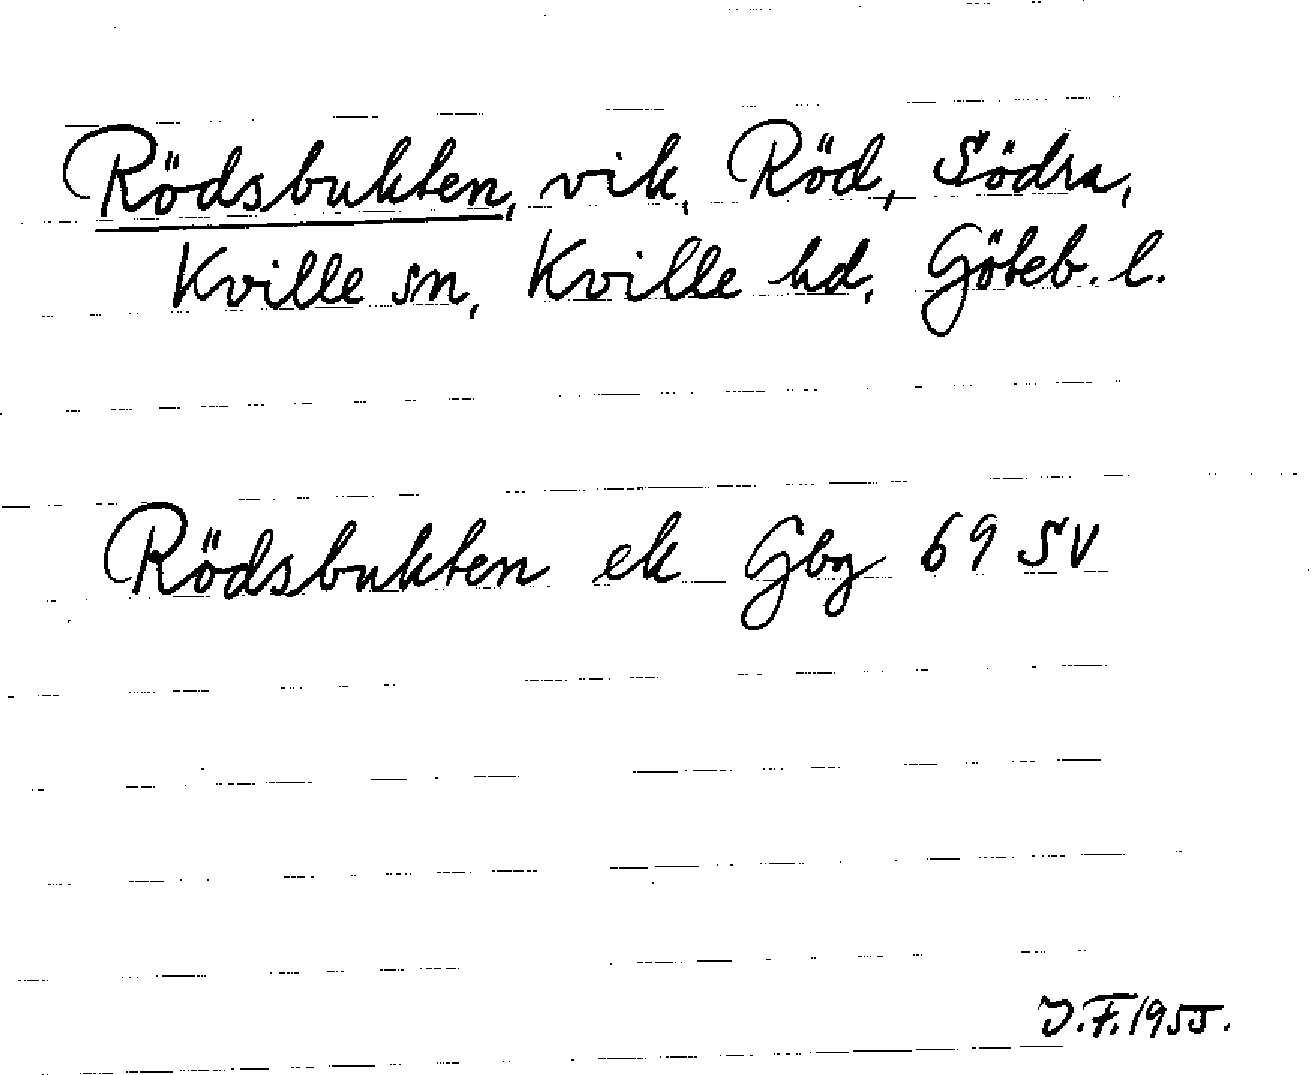 Rödsbukten, vik, Röd, Södra,
Kville sn, Kville hd, Göteb. l.
Rödsbukten ek Gbg 69 SV
J.F. 1955.